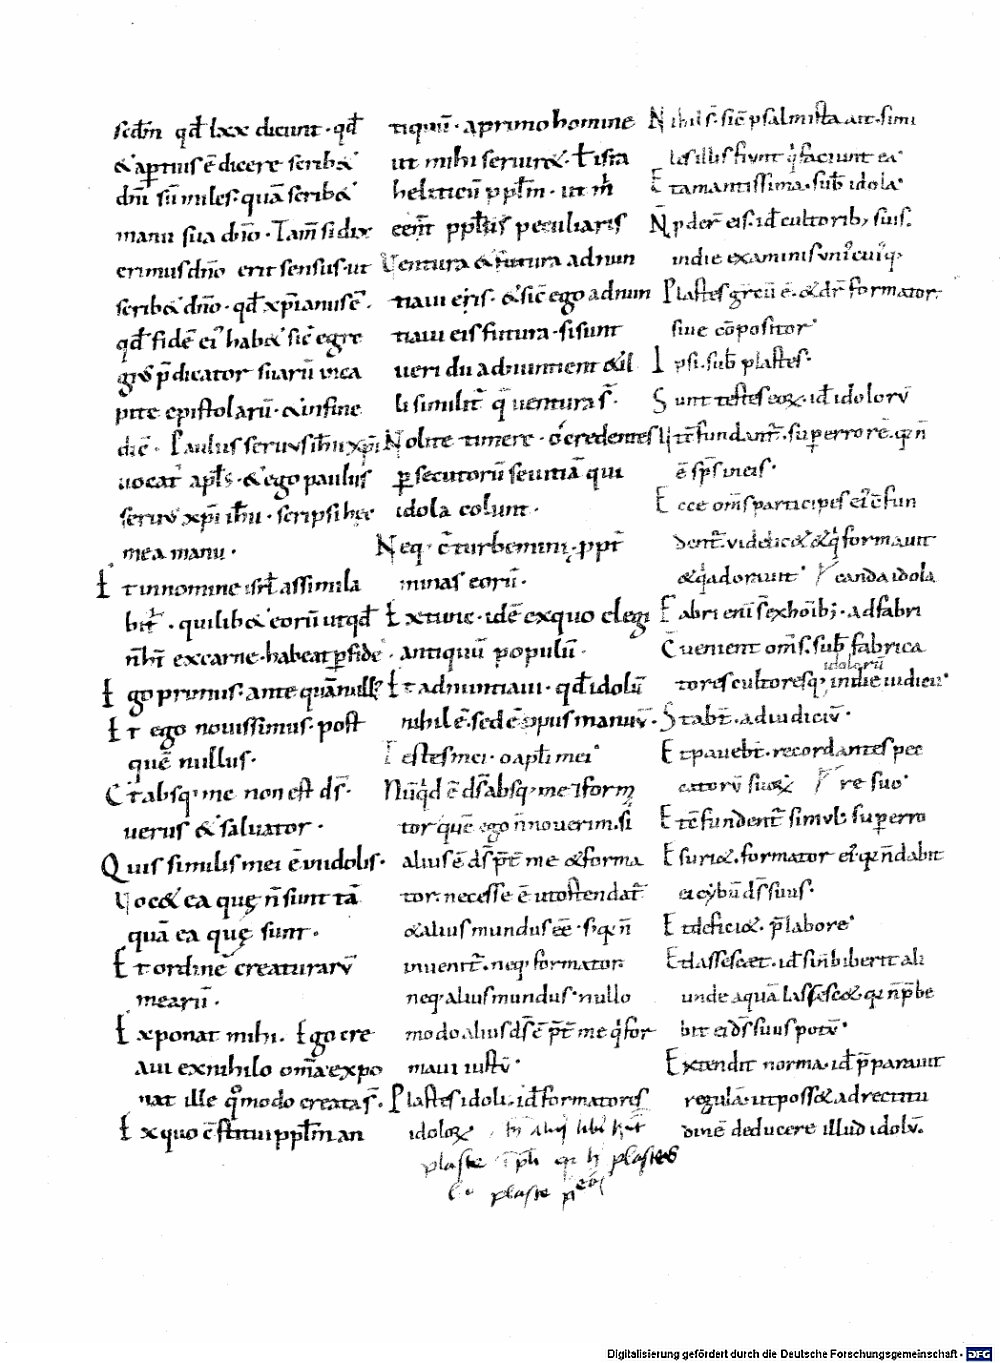 scdm̄ qđ lxx dicunt · qđ
& aptius ē dicere scrib&
dn̄i sū miles · quā scrib&
manu sua dn̄o · Tam̄ si dix
erimus dn̄o erit sensus · ut
scrib& dn̄o · qđ xp̄ianus ē ·
qđ fidē ei' hab& sic̄ egre
p̄dicator suarū in ca
pite epistolarū · & in fine
dic̄ · Paulus seruus ih̄u xp̄i
uocat' apl̄s · & ego paulus
seruus xp̄i ih̄u · scripsi hęc
mea manu ·
Et in nomine isrl̄ assimila
bit̄ · quilib& eorū ut qđ
n̄ ht̄ ex carne · habeat p fide
Ego primus · ante quā null'
Et ego nouissimus · post
quē nullus ·
Et absq; me non est ds̄ ·
uerus & saluator ·
Quis similis mei ē in idolis ·
Uoc& ea quę n̄ sunt tā
quā ea quę sunt ·
Et ordinē creaturarū
mearū ·
Exponat mihi · Ego cre
aui ex nihilo om̄a expo
nat ille qomodo creata s̄ ·
Ex quo c̄stitui ppl̄m an
tiquū · a primo homine
ut mihi seruir& · ł ista
heliticū ppl̄m · ut m̄
eēnt ppl̄us peculiaris
Uentura & futura adnun
tiaui eis · & sic̄ ego adnun
tiaui eis futura · si sunt
ueri dii adnuntient & il
li similit̄ q̄ uentura s̄ ·
Nolite timere · o credentes
p̱secutorū seuitiā qui
idola colunt ·
Neq; c̄turbemini · ppt̄
minas eorū ·
Ex tunc · idē ex quo elegi
antiquū populū ·
Et adnuntiaui · qđ idolū
nihil ē · sed ē opus manuū ·
Testes mei · o apl̄i mei
Nūqđ ē ds̄ absq; me ł form
tor quē ego n̄ nouerim · si
alius ē ds̄ p̄t̄ me & forma
tor · necesse ē ut ostendat̄
& alius mundus eē · si qn̄
inuenit̄ · neq; formator
neq; alius mundus · nullo
modo alius ds̄ ē p̄t̄ me q for
maui iustū ·
Plastes idoli · iđ formatores
idolor
plaste plastes
plaste
Nihil s̄ · sic̄ psalmista ait · simi
les illis fiunt q faciunt ea
Et amantissima · sub̄ idola
N̄ pder̄ eis · iđ cultorib; suis ·
in die examinis uni'cui'q;
Plastes grecū ē · & dr̄ formator
siue cōpositor
Ipsi · sub̄ plastes ·
Sunt testes eor · iđ idolorū
Ut c̄fundant̄ · sup errore · qn̄
ē sp̄s in eis ·
Ecce om̄s participes ei' c̄fun
dent̄ · videlic& & q formauit
& q adorauit Feranda idola
Fabri eni s̄ ex hoib; · ad fabri
Cuenient om̄s · sub̄ fabrica
idolorū
tores cultoresq; in die iudicii
Stabt̄ · ad iudiciū ·
Et pauebt̄ · recordantes pec
catorū suor
Et c̄fundent̄ simul · sup erro re suo
Esuri& · formator ei' qn̄ dabit
ei cybū ds̄ suus ·
Et defici& · p̄ labore
Et lassescet · iđ si n̄ biberit ali
unde aquā lassesc& qn̄ p̄be
bit ei ds̄ suus potū ·
Extendit norma · iđ p̄parauit
regulā · ut poss& ad rectitu
dinē deducere illud idolū ·
Digitalisierung gefördert durch die Deutsche Forschungsgemeinschaft - DFG